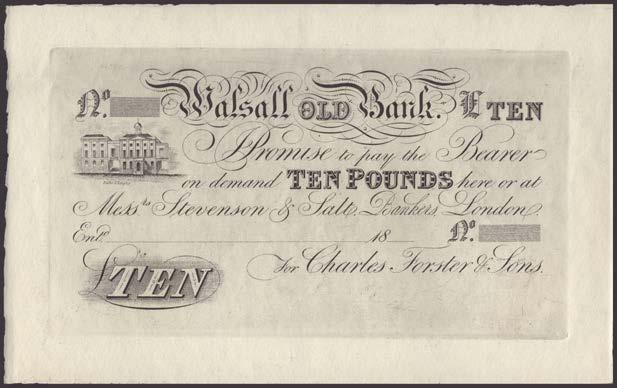 No. Walsall OLD Bank. £ TEN
I Promise to pay the Bearer
on demand TEN POUNDS here or at
Messrs Stevenson & Salt, Bankers, London.
Entd. 18 No.
£TEN
For Charles Forster & Sons.